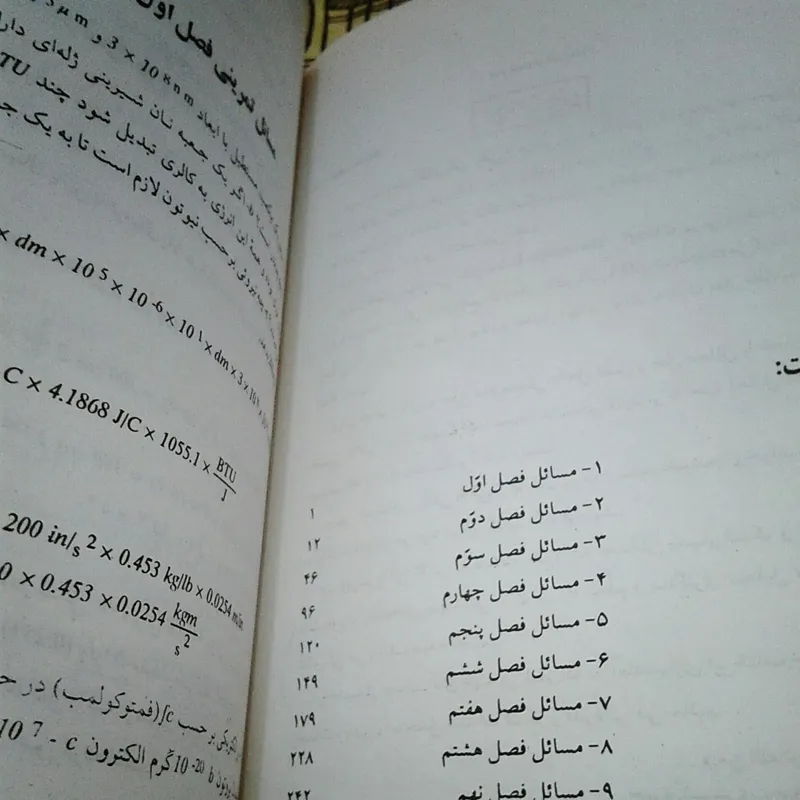 مسائل تمرینی فصل اول
مستطیل با ابعاد 3 × 10 8 nm و μm
اگر یک جعبه نان شیرینی ژله‌ای دارا
همهٔ این انرژی به کالری تبدیل شود چند TU
بر حسب نیوتون لازم است تا به یک ج
× dm × 10 5 × 10 -6 × 10 1 × dm × 3 × 10
C × 4.1868 J/C × 1055.1 × BTU/J
200 in/s 2 × 0.453 kg/lb × 0.0254 m/in
0 × 0.453 × 0.0254 kgm/s 2
بر حسب fc (فمتوکولمب) در
10 7 - c گرم الکترون b 10 -20
ت:
۱- مسائل فصل اوّل ۱
۲- مسائل فصل دوّم ۱۲
۳- مسائل فصل سوّم ۴۶
۴- مسائل فصل چهارم ۹۶
۵- مسائل فصل پنجم ۱۲۰
۶- مسائل فصل ششم ۱۴۹
۷- مسائل فصل هفتم ۱۷۹
۸- مسائل فصل هشتم ۲۲۸
۹- مسائل فصل نهم ۲۴۲